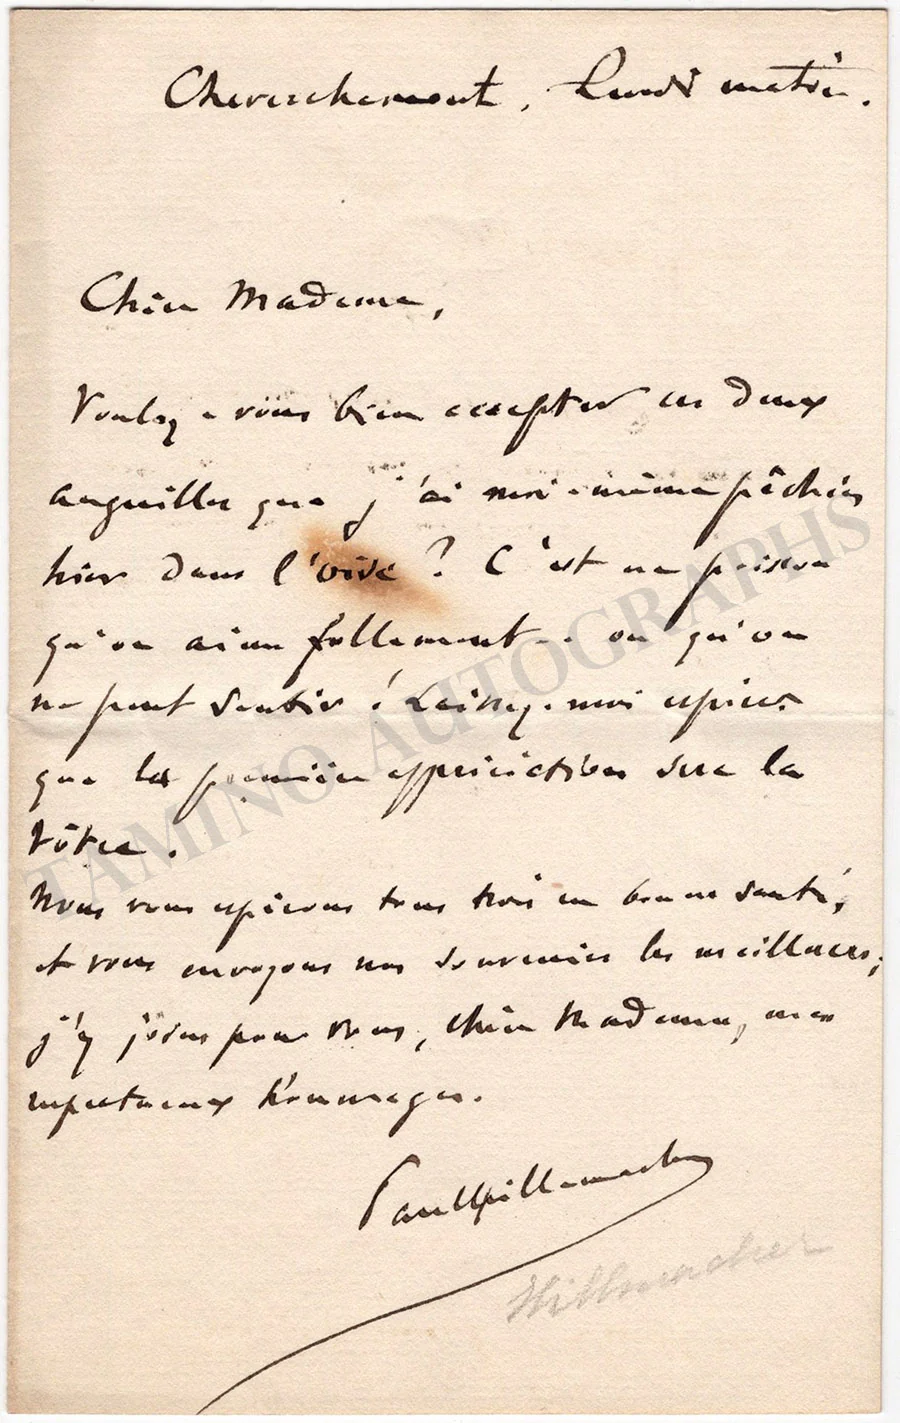 Lundi matin.
Chère Madame,
Voulez-vous bien accepter ces deux
anguilles que j'ai moi-même pêchées
hier dans l'Oise ? C'est un poisson
qu'on aime follement -- ou qu'on
ne peut sentir ! Laissez-moi espérer
que la première appréciation sera la
vôtre.
Nous vous espérons tous trois en bonne santé,
et vous envoyons nos souvenirs les meilleurs ;
j'y joins pour vous, chère Madame, mes
respectueux hommages.
Paul Hillemacher
Hillmacher
TAMINO AUTOGRAPHS